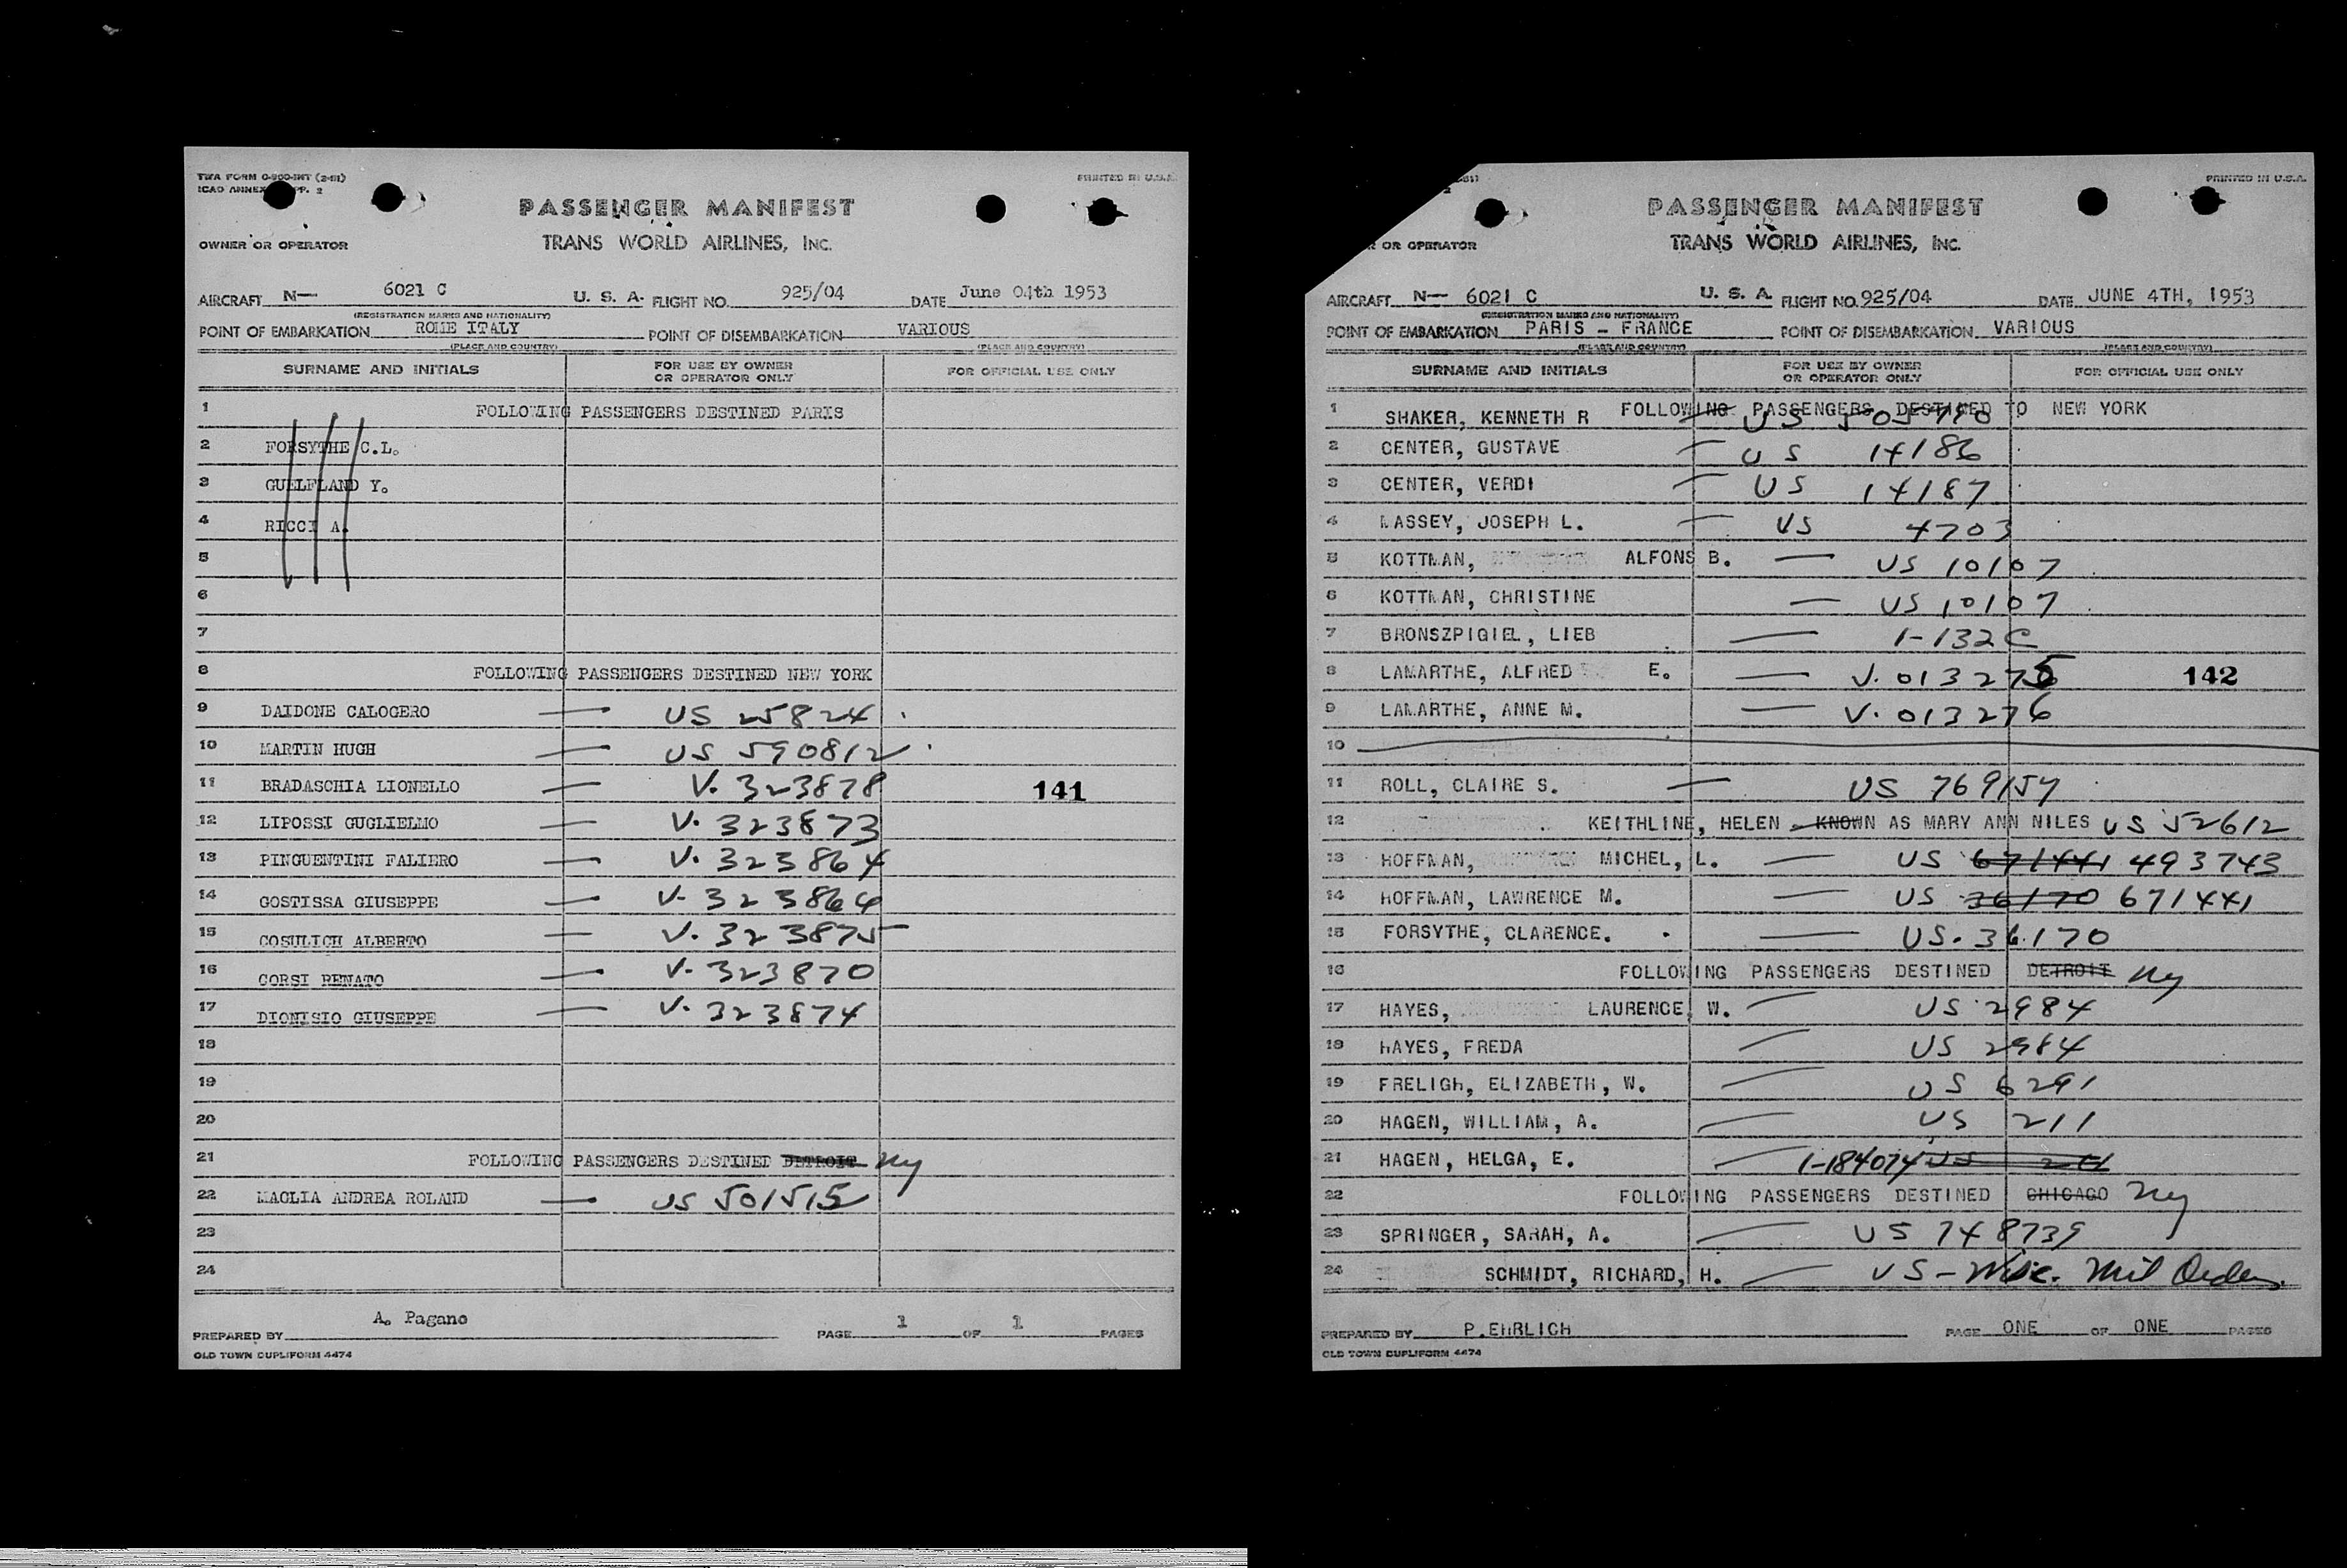 TWA FORM O-900-INT (2-51)
ICAO ANNEX PP. 2
PRINTED IN U.S.A.
PASSENGER MANIFEST
OWNER OR OPERATOR TRANS WORLD AIRLINES, INC.
AIRCRAFT N— 6021 C U. S. A. FLIGHT NO. 925/04 DATE June 04th 1953
(REGISTRATION MARKS AND NATIONALITY)
POINT OF EMBARKATION ROME ITALY POINT OF DISEMBARKATION VARIOUS
(PLACE AND COUNTRY) (PLACE AND COUNTRY)
SURNAME AND INITIALS FOR USE BY OWNER OR OPERATOR ONLY FOR OFFICIAL USE ONLY
1 FOLLOWING PASSENGERS DESTINED PARIS
2 FORSYTHE C.L.
3 GUELFLAND Y.
4 RICCI A.
5
6
7
8 FOLLOWING PASSENGERS DESTINED NEW YORK
9 DAIDONE CALOGERO — US 25824
10 MARTIN HUGH — US 590812
11 BRADASCHIA LIONELLO — V. 323878 141
12 LIPOSSI GUGLIELMO — V. 323873
13 PINGUENTINI FALIERO — V. 323864
14 GOSTISSA GIUSEPPE — V. 323864
15 COSULICH ALBERTO — V. 323875
16 CORSI RENATO — V. 323870
17 DIONISIO GIUSEPPE — V. 323874
18
19
20
21 FOLLOWING PASSENGERS DESTINED DETROIT NY
22 MAGLIA ANDREA ROLAND — US 501515
23
24
PREPARED BY A. Pagano PAGE 1 OF 1 PAGES
OLD TOWN DUPLIFORM 4474
PRINTED IN U.S.A.
PASSENGER MANIFEST
R OR OPERATOR TRANS WORLD AIRLINES, INC.
AIRCRAFT N— 6021 C U. S. A. FLIGHT NO. 925/04 DATE JUNE 4TH, 1953
(REGISTRATION MARKS AND NATIONALITY)
POINT OF EMBARKATION PARIS - FRANCE POINT OF DISEMBARKATION VARIOUS
(PLACE AND COUNTRY) (PLACE AND COUNTRY)
SURNAME AND INITIALS FOR USE BY OWNER OR OPERATOR ONLY FOR OFFICIAL USE ONLY
1 SHAKER, KENNETH R FOLLOWING PASSENGERS DESTINED TO NEW YORK — US
2 CENTER, GUSTAVE — US 14186
3 CENTER, VERDI — US 14187
4 MASSEY, JOSEPH L. — US 4703
5 KOTTMAN, ALFONS B. — US 10107
6 KOTTMAN, CHRISTINE — US 10107
7 BRONSZPIGIEL, LIEB — 1-132C
8 LAMARTHE, ALFRED E. — V. 013275 142
9 LAMARTHE, ANNE M. — V. 013276
10
11 ROLL, CLAIRE S. — US 769157
12 KEITHLINE, HELEN - KNOWN AS MARY ANN NILES US 52612
13 HOFFMAN, MICHEL, L. — US 671441 493743
14 HOFFMAN, LAWRENCE M. — US 36170 671441
15 FORSYTHE, CLARENCE. — US. 36170
16 FOLLOWING PASSENGERS DESTINED DETROIT NY
17 HAYES, LAURENCE W. — US 2984
18 HAYES, FREDA — US 2984
19 FRELIGH, ELIZABETH, W. — US 6291
20 HAGEN, WILLIAM, A. — US 211
21 HAGEN, HELGA, E. — 1-184074 US 211
22 FOLLOWING PASSENGERS DESTINED CHICAGO NY
23 SPRINGER, SARAH, A. — US 748739
24 SCHMIDT, RICHARD, H. — US - Mil Orders.
PREPARED BY P. EHRLICH PAGE ONE OF ONE PAGES
OLD TOWN DUPLIFORM 4474